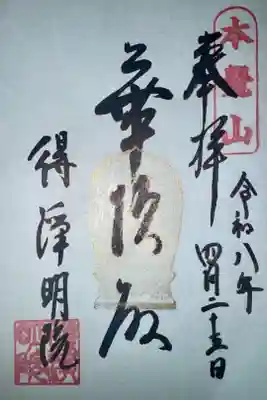 本登山
奉拝
令和八年
四月二十五日
華頂殿
得浄明院